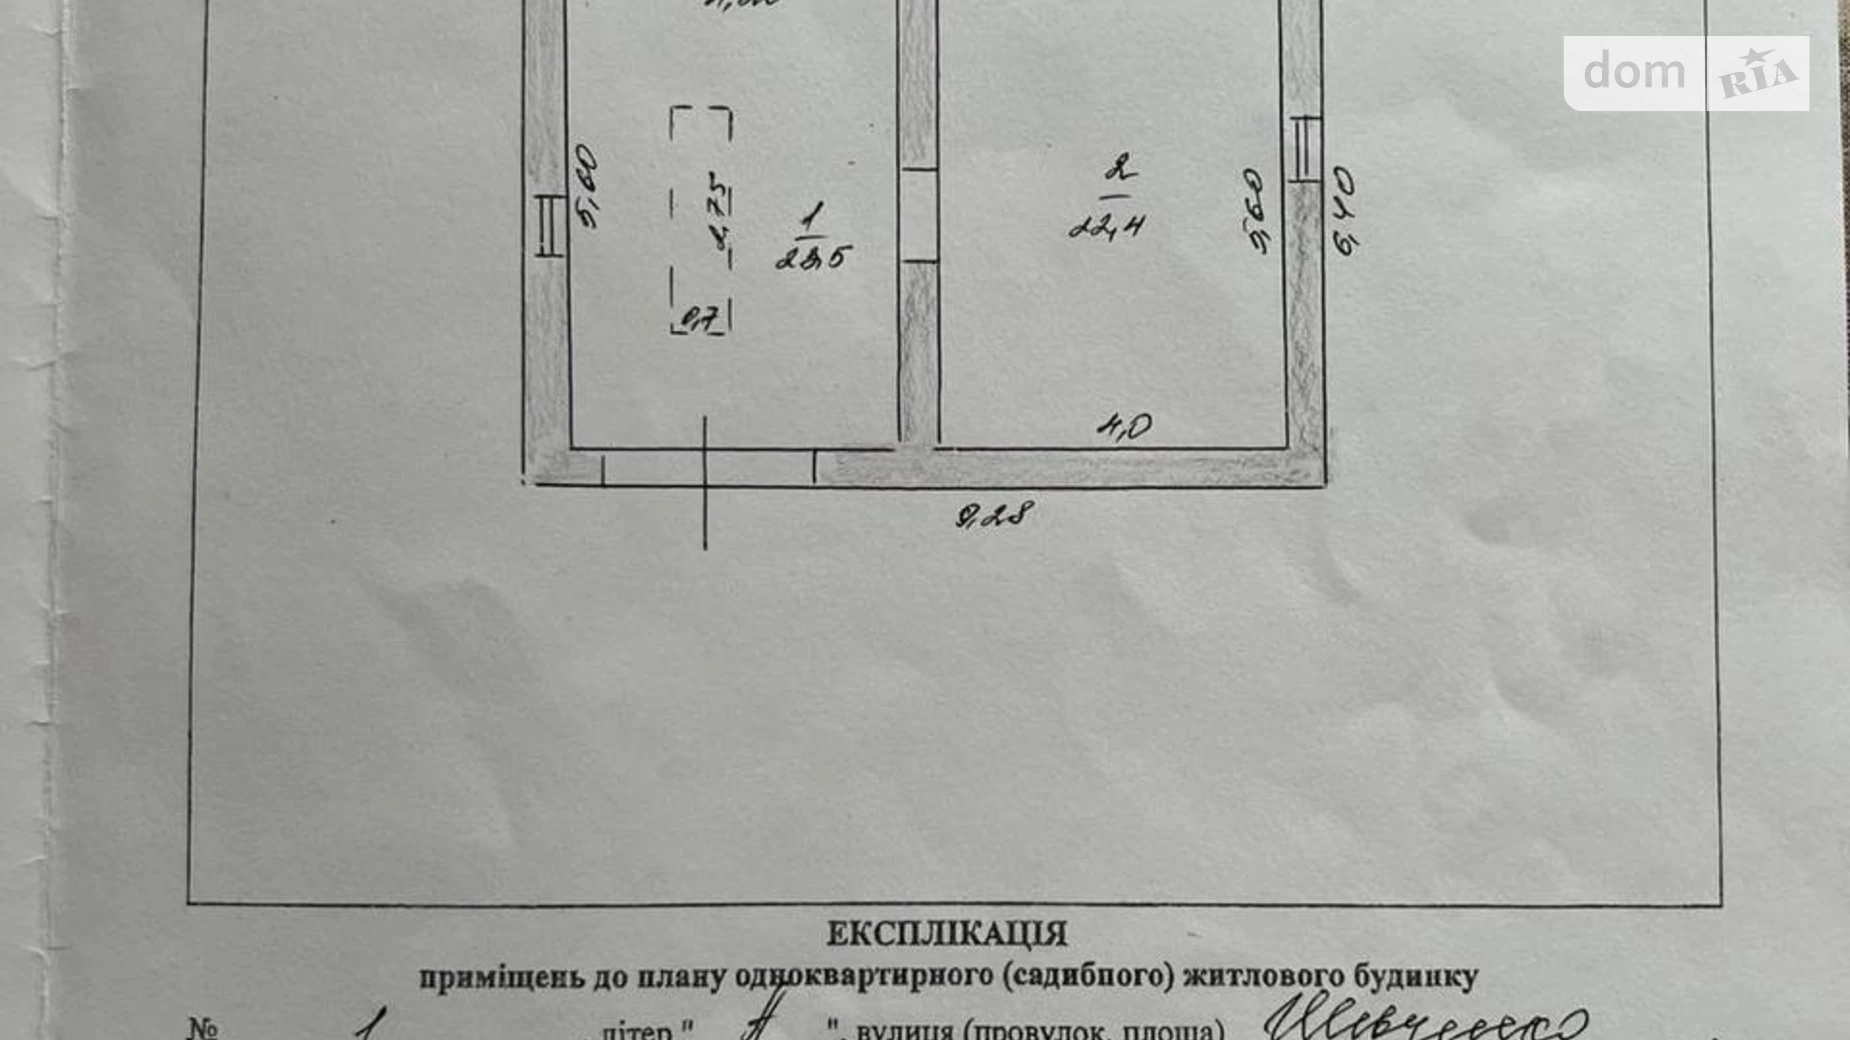 dom RIA
5,60
2,75
0,7
1
22,5
2
22,4
5,60
6,40
4,0
9,28
ЕКСПЛІКАЦІЯ
приміщень до плану одноквартирного (садибного) житлового будинку
№ 1 літер " А ", вулиця (провулок, площа) Шевченко